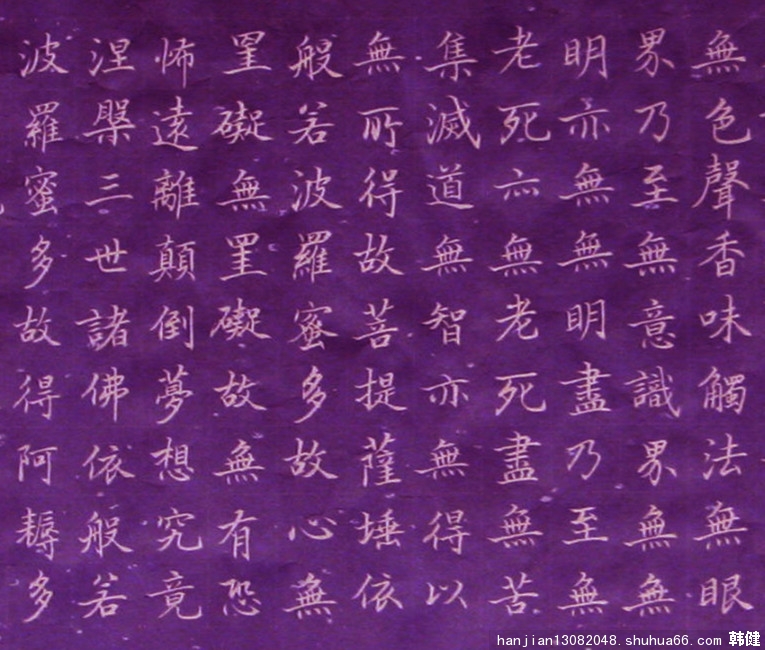 無色聲香味觸法無眼
界乃至無意識界無無
明亦無無明盡乃至無
老死亦無老死盡無苦
集滅道無智亦無得以
無所得故菩提薩埵依
般若波羅蜜多故心無
罣礙無罣礙故無有恐
怖遠離顛倒夢想究竟
涅槃三世諸佛依般若
波羅蜜多故得阿耨多
hanjian13082048.shuhua66.com 韩健